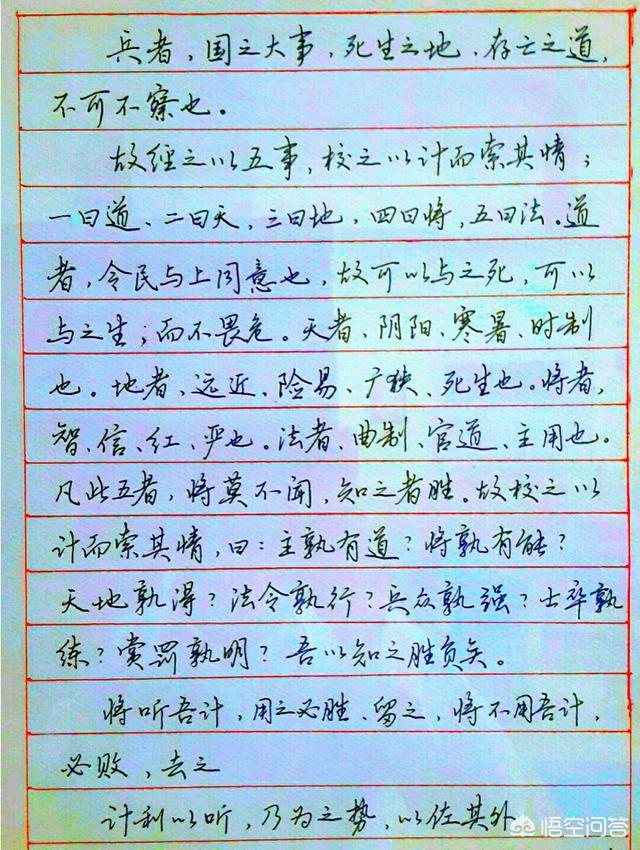 兵者，国之大事，死生之地、存亡之道，
不可不察也。
故经之以五事，校之以计而索其情；
一曰道、二曰天，三曰地，四曰将，五曰法。道
者，令民与上同意也，故可以与之死，可以
与之生；而不畏危。天者、阴阳、寒暑、时制
也。地者、远近、险易、广狭、死生也。将者，
智、信、红、严也。法者、曲制、官道、主用也。
凡此五者，将莫不闻，知之者胜。故校之以
计而索其情，曰：主孰有道？将孰有能？
天地孰得？法令孰行？兵众孰强？士卒孰
练？赏罚孰明？吾以知之胜负矣。
将听吾计，用之必胜、留之，将不用吾计，
必败，去之
计利以听，乃为之势，以佐其外
悟空问答